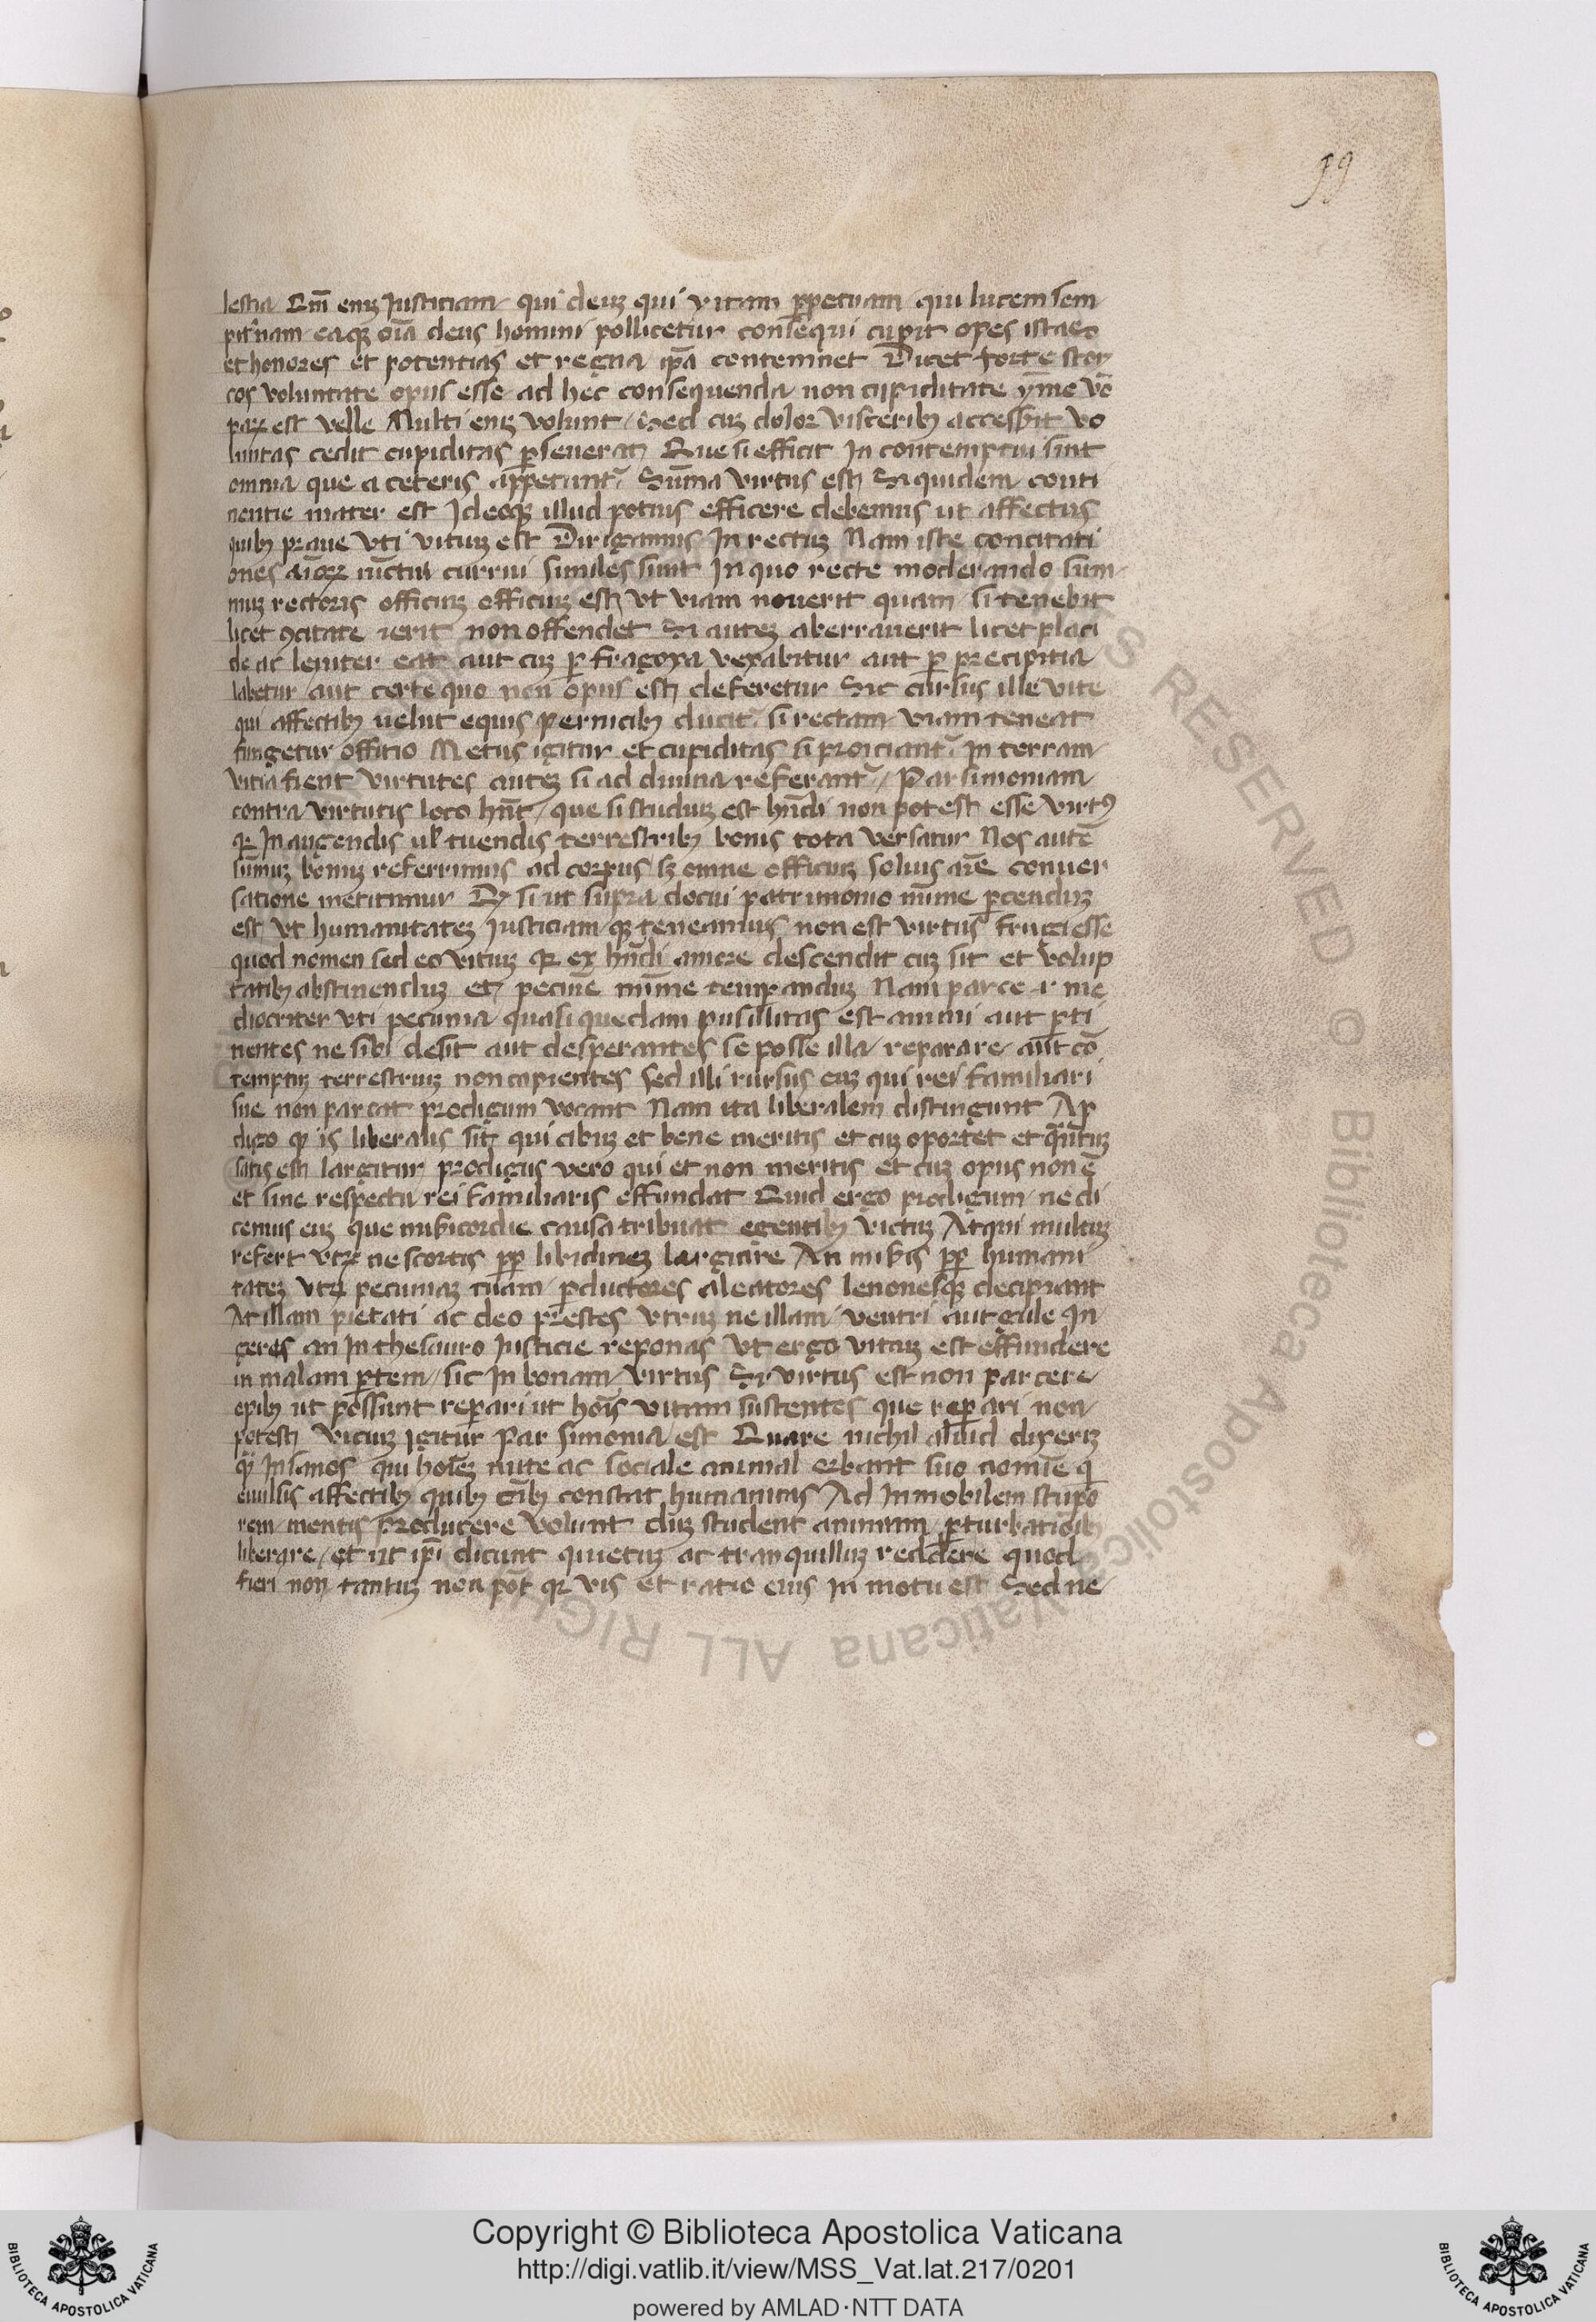 99
lestia Qm̄ eniꝫ Justiciam qui deuꝫ qui vitam ꝑpetuam qui lucem sem
pit̄nam eaqꝫ oīa deus homini pollicetur consequi cupit opes istas
et honores et potentias et regna ip̄a contemnet Dicet forte stoy
cos voluntate opus esse ad hec consequenda non cupiditate ymō vō
paꝝ est velle Multi eniꝫ volunt sed cuꝫ dolor visceribꝫ accessit vo
luntas cedit cupiditas ꝑseuerat Que si efficit In contemptui sint
omnia que a ceteris appetunt᷑ Sūma virtus est Siquidem conti
nentie mater est Ideoqꝫ illud potius efficere debemus ut affectus
quibꝫ praue vti vituꝫ est Dirigamus In rectuꝫ Nam iste concitati
ones aīoꝝ iūctui currui similes sunt In quo recte moderando sum
muꝫ rectoris officiuꝫ officiuꝫ est vt viam nouerit quam si tenebit
licet ꝯcitate ierit non offendet Si auteꝫ aberrauerit licet placi
de ac leniter eat aut cuꝫ ꝑ fragoxa vexabitur aut ꝑ precipitia
labetur aut certe quo non opus est deferetur Sic cursus ille vite
qui affectibꝫ uelut equis pernicibꝫ ducit᷑ si rectam viam teneat
fungetur offitio Metus igitur et cupiditas si proiciant᷑ In terram
vitia fient virtutes auteꝫ si ad diuina referant᷑ Parsimoniam
contra virtutis loco hn̄t que si studiuꝫ est hn̄di non potest esse virtꝰ
qꝛ In augendis ul̓ tuendis terrestribꝫ bonis tota versatur Nos autē
sūmuꝫ bonuꝫ referrimus ad corpus sꝫ omne officiuꝫ solius aīe conuer
satione metitimur Qꝫ si ut supra docui patrimonio mīme ꝑcenduꝫ
est vt humanitateꝫ Justiciamqꝫ teneamus non est virtus frugi esse
quod nomen sed eo vituꝫ qꝛ ex hn̄di amore descendit cuꝫ sit et volup
tatibꝫ abstinenduꝫ et pecunie mīme temꝑanduꝫ Nam parce i me
diocriter vti pecunia quasi quedam pusillitas est animi aut ꝑti
nentes ne sibi desit aut desperantes se posse illa reparare aut cō
temptuꝫ terrestriuꝫ non capientes sed illi rursus euꝫ qui rei familiari
sue non parcat prodigum vocant Nam ita liberalem distingunt A ꝓ
digo qꝫ is liberalis sit qui cibuꝫ et bene meritis et cuꝫ oportet et qn̄tuꝫ
satis est largitur prodigus vero qui et non meritis et cuꝫ opus non ē
et sine respectu rei familiaris effundat Quid ergo prodigum ne di
cemus euꝫ que mīsericordie causa tribuat egentibꝫ victuꝫ Atqui multuꝫ
refert vtꝝ ne scortis ꝓꝑ libidineꝫ largiare An mis̄is ꝓꝑ humani
tateꝫ vtꝝ pecuniaꝫ tuam ꝑductores aleatores lenonesqꝫ decipiant
At illam pietati ac deo prestes vtruꝫ ne illam ventri aut gule In
geres an In thesauro Justicie reponas Vt ergo vituꝫ est effundere
in malam ꝑtem sic In bonam virtus Si virtus est non parcere
opibꝫ ut possunt reꝑari ut hoīs vitam sustentes que reꝑari non
potest viciuꝫ Igitur Parsimonia est Quare nichil aliud dixeriꝫ
qꝫ Insanos qui hoīeꝫ mite ac sociale animal orbant suo nomīe qi
euulsis affectibꝫ quibꝫ oībꝫ constat humanitas Ad Inmobilem stupo
rem mentis producere volunt duꝫ student animum ꝑturbatiōibꝫ
liberare et ut ip̄i dicunt quietuꝫ ac tranquilluꝫ reddere quod
fieri non tantuꝫ non pōt qꝛ vis et ratio eius In motu est Sed ne
S RESERVED © Biblioteca Apostolica Vaticana ALL RIGH
Copyright © Biblioteca Apostolica Vaticana
http://digi.vatlib.it/view/MSS_Vat.lat.217/0201
powered by AMLAD·NTT DATA
BIBLIOTECA APOSTOLICA VATICANA
BIBLIOTECA APOSTOLICA VATICANA